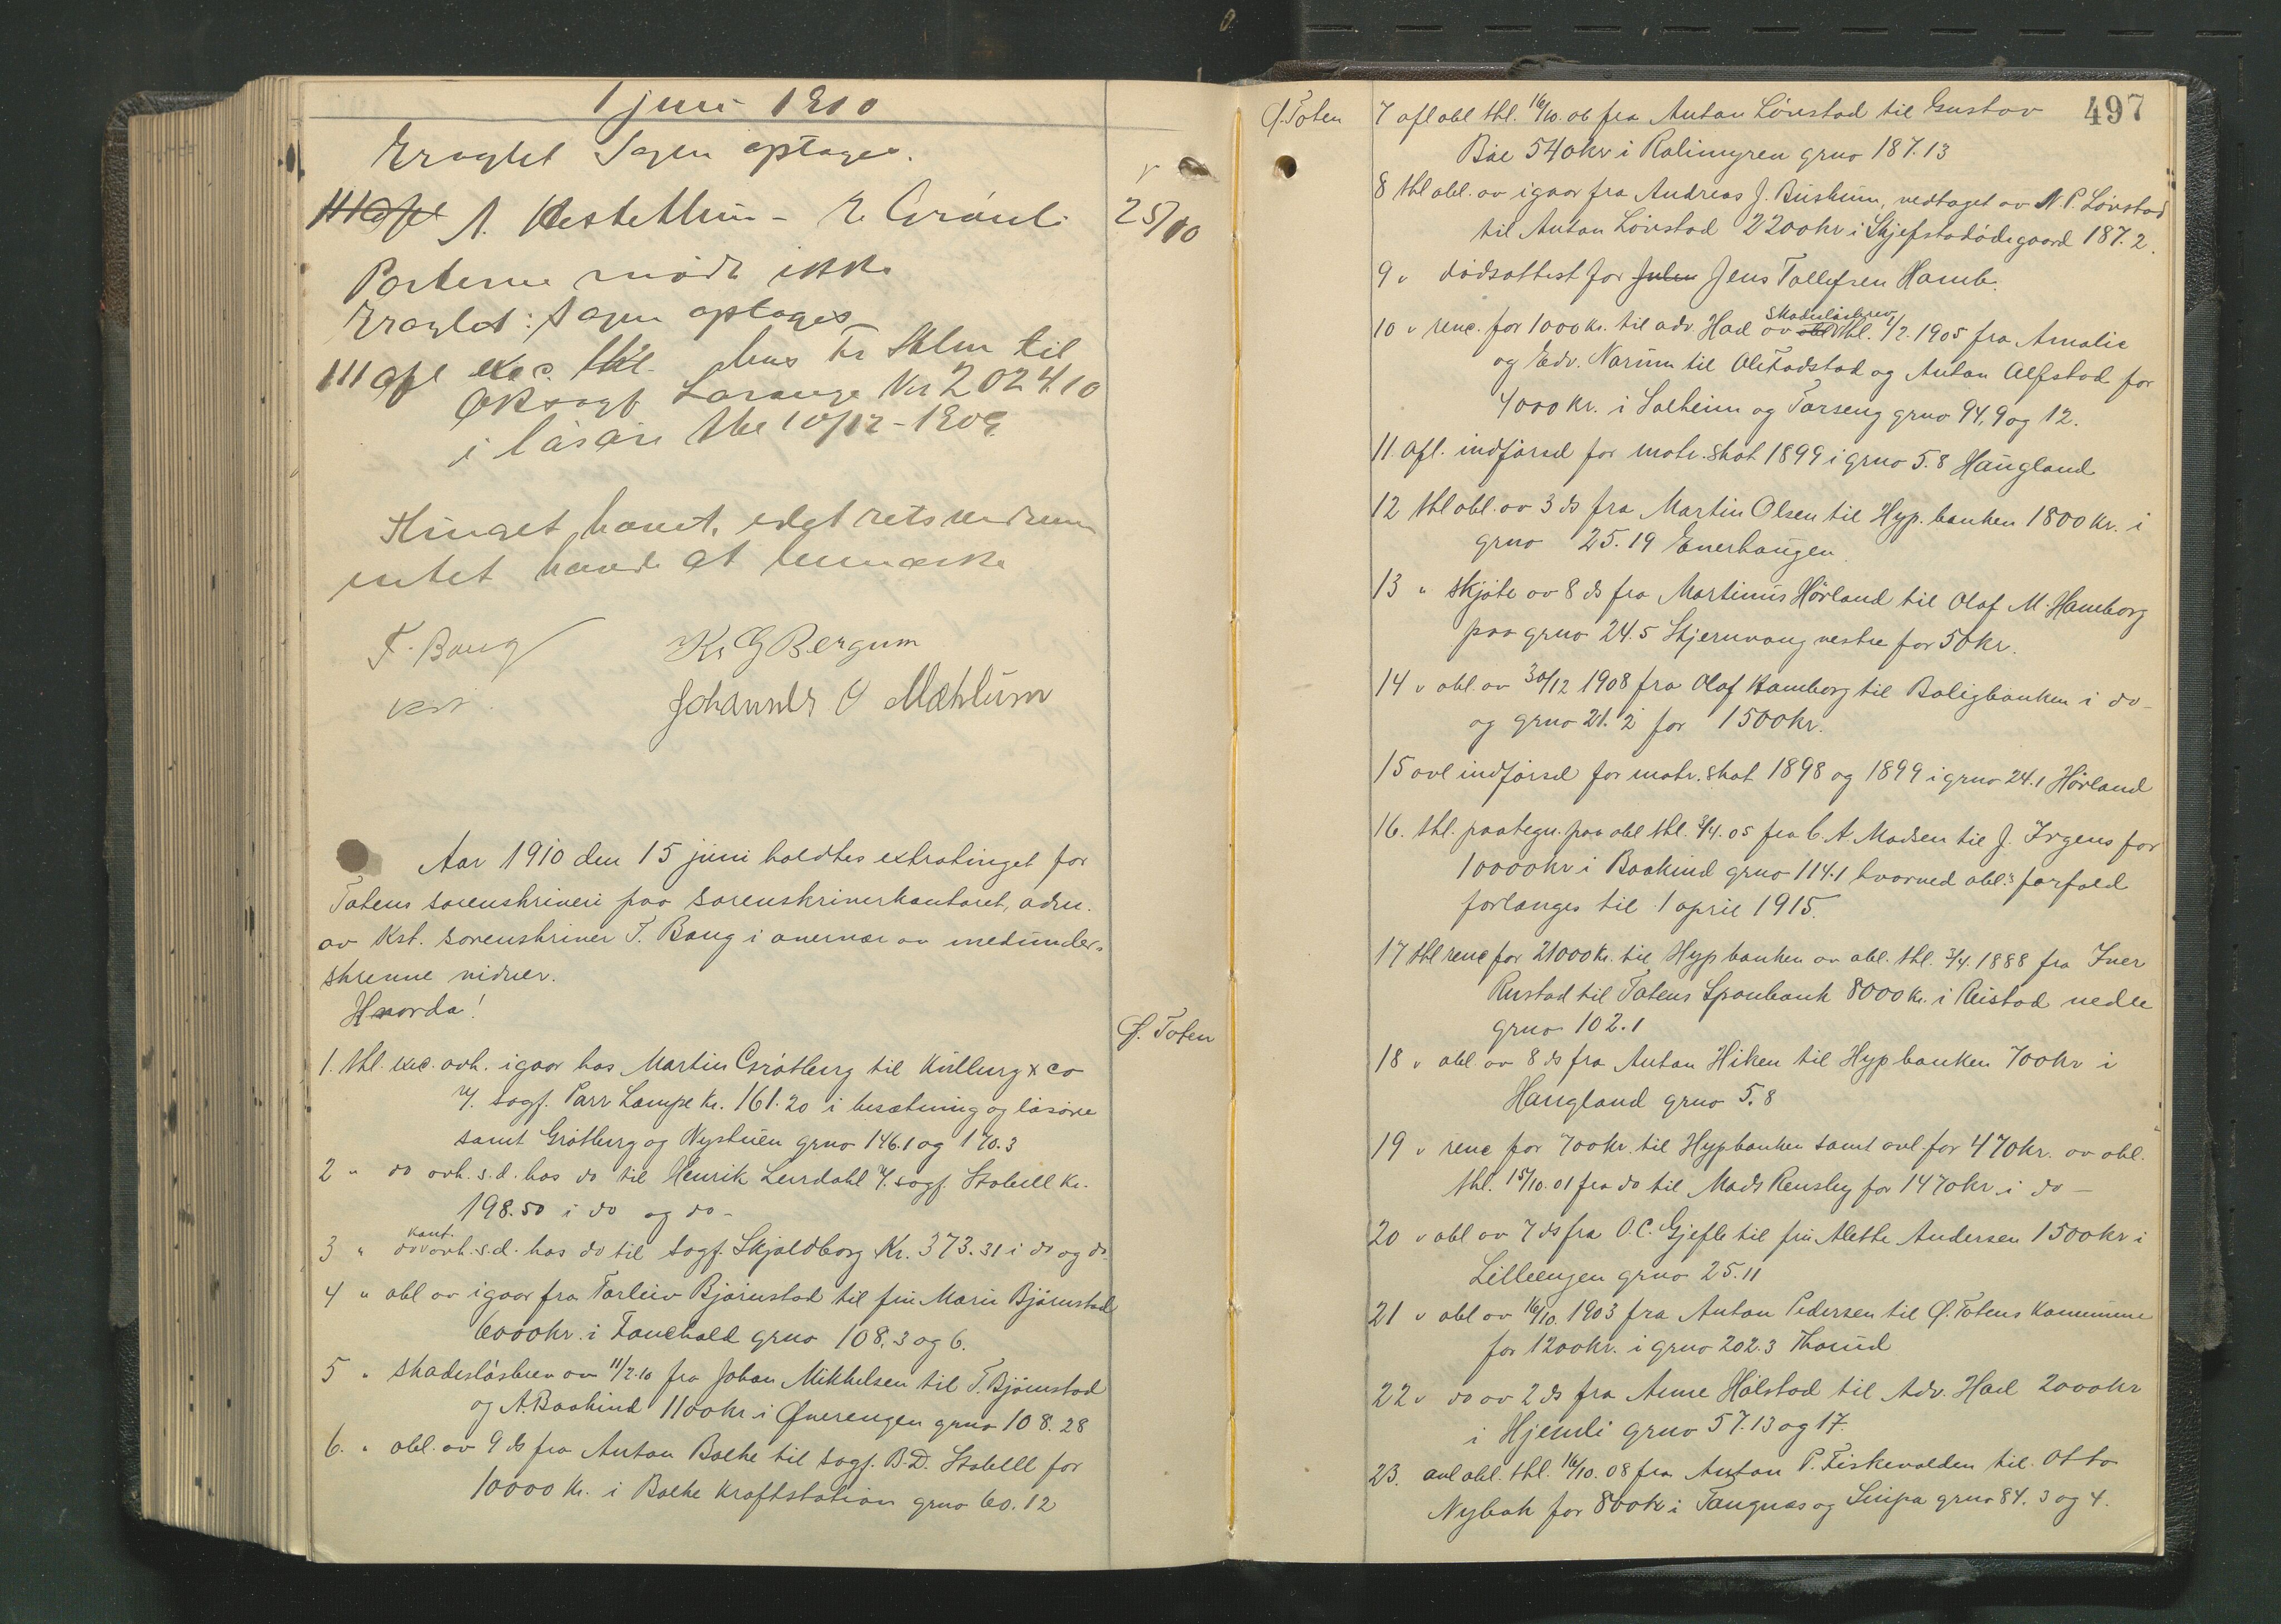 1 juni 1910
Eragtet Sagen optages.
A. Hestehun - E. Grönli
25/10
Parterne mødte ikke
Eragtet: Sagen optages
111 afl exec. thl. hos Fr Holm til
O.R. sagf. Lorange Kr 2024.10
i løsøre thl 10/12 - 1909
Tinget hævet, idet retsvidnene
intet havde at bemærke
T. Bang
kst.
Kr. G Bergum
Johannes O Mæhlum
Aar 1910 den 15 juni holdtes extratinget for
Totens sorenskriveri paa sorenskriverkontoret, adm.
av kst. sorenskriver T. Bang i overvær av medunder-
skrevne vidner.
Hvorda!
Ø. Toten
1. thl. exc. avh. igaar hos Martin Grøtberg til Kulberg & Co
v/. sagf. Parr Lampe kr. 161.20 i besætning og løsøre
samt Grøtberg og Nystuen grno 146.1 og 170.3
2 " do avh. s.d. hos do til Henrik Leirdahl v/. sagf. Stabell kr.
198.50 i do og do -
3 " do kont. avh. s.d. hos do til sagf. Skjoldborg kr. 373.31 i do og do.
4 " obl av igaar fra Torleiv Bjørnstad til fru Marie Bjørnstad
6000kr. i Fauchald grno 108,3 og 6.
5 " skadesløsbrev av 11/2.10 fra Johan Mikkelsen til T. Bjørnstad
og A. Baakind 1100kr. i Øverengen grno 108.28
6. " obl. av 9 ds fra Anton Bolke til sagf. B.D. Stabell for
10000 kr. i Bolke kraftstation grno 60.12
497
Ø. Toten
7 afl obl thl. 16/10.06 fra Anton Lønstad til Gustav
Bøe 540kr i Rolimyren grno 187.13
8 thl obl. av igaar fra Andreas J. Bushun, vedtaget av N. P. Lønstad
til Anton Lønstad 2200kr i Skjefstadødegaard 187.2.
9 v dødsattest for Jens Tollefsen Hamb.
10 v renc. for 1000 kr. til adv. Hoel av skadesløsbrev thl. 1/2.1905 fra Amalie
og Edv. Narum til Ole Fodstad og Anton Alfstad for
4000 kr. i Solheim og Torseng grno 94,9 og 12.
11. afl. indførsel for matr. skat 1899 i grno 5.8 Haugland
12 thl obl. av 3 ds fra Martin Olsen til Hyp. banken 1800 kr. i
grno 25.19 Enerhaugen
13 " skjøte av 8 ds fra Martinus Hørland til Olaf M. Hamborg
paa grno 24.5 Skjernvang vestre for 50kr.
14 v obl. av 30/12 1908 fra Olaf Hamborg til Boligbanken i do -
og grno 21.2 for 1500kr.
15 avl indførsel for matr. skat 1898 og 1899 i grno 24.1 Hørland
16. thl. paategn. paa obl thl. 3/4.05 fra C. A. Madsen til J. Irgens for
10000kr i Baakind grno 114.1 hvorved obl.s forfald
forlænges til 1 april 1915.
17 thl renc for 21000kr. til Hypbanken av obl. thl. 3/4.1888 fra Iver
Rustad til Totens Sparebank 8000 kr. i Reistad nedre
grno 102.1
18 v obl. av 8 ds fra Anton Hiken til Hypbanken 700kr i
Haugland grno 5.8
19 v renc for 700kr. til Hypbanken samt avl for 470kr. av obl.
thl. 15/10.01 fra do til Mads Rensby for 1470kr. i do -
20 v obl av 7 ds fra O.C. Gjefle til fru Alette Andersen 1500kr i
Lilleengen grno 25.11
21 v obl av 16/10.1903 fra Anton Pedersen til Ø. Totens kommune
for 1200kr. i grno 202.3 Thorud
22 v do av 2 ds fra Anne Hølstad til Adv. Hoel 2000kr
i Hjemli grno 57.13 og 17.
23. avl obl. thl. 16/10.08 fra Anton P. Fiskevolden til Otto
Nybak for 800kr i Tangnæs og Snipa grno 84.3 og 4.